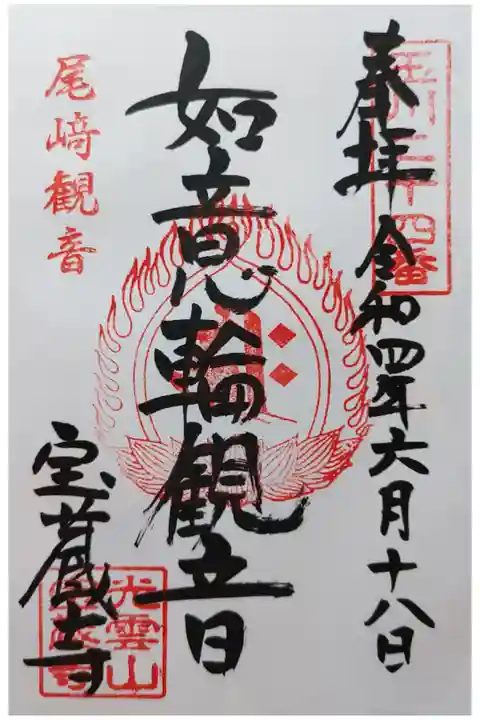 玉川三十四番
奉拝 令和四年六月十八日
如意輪観音
尾﨑觀音
宝蔵寺
光雲山
宝蔵寺